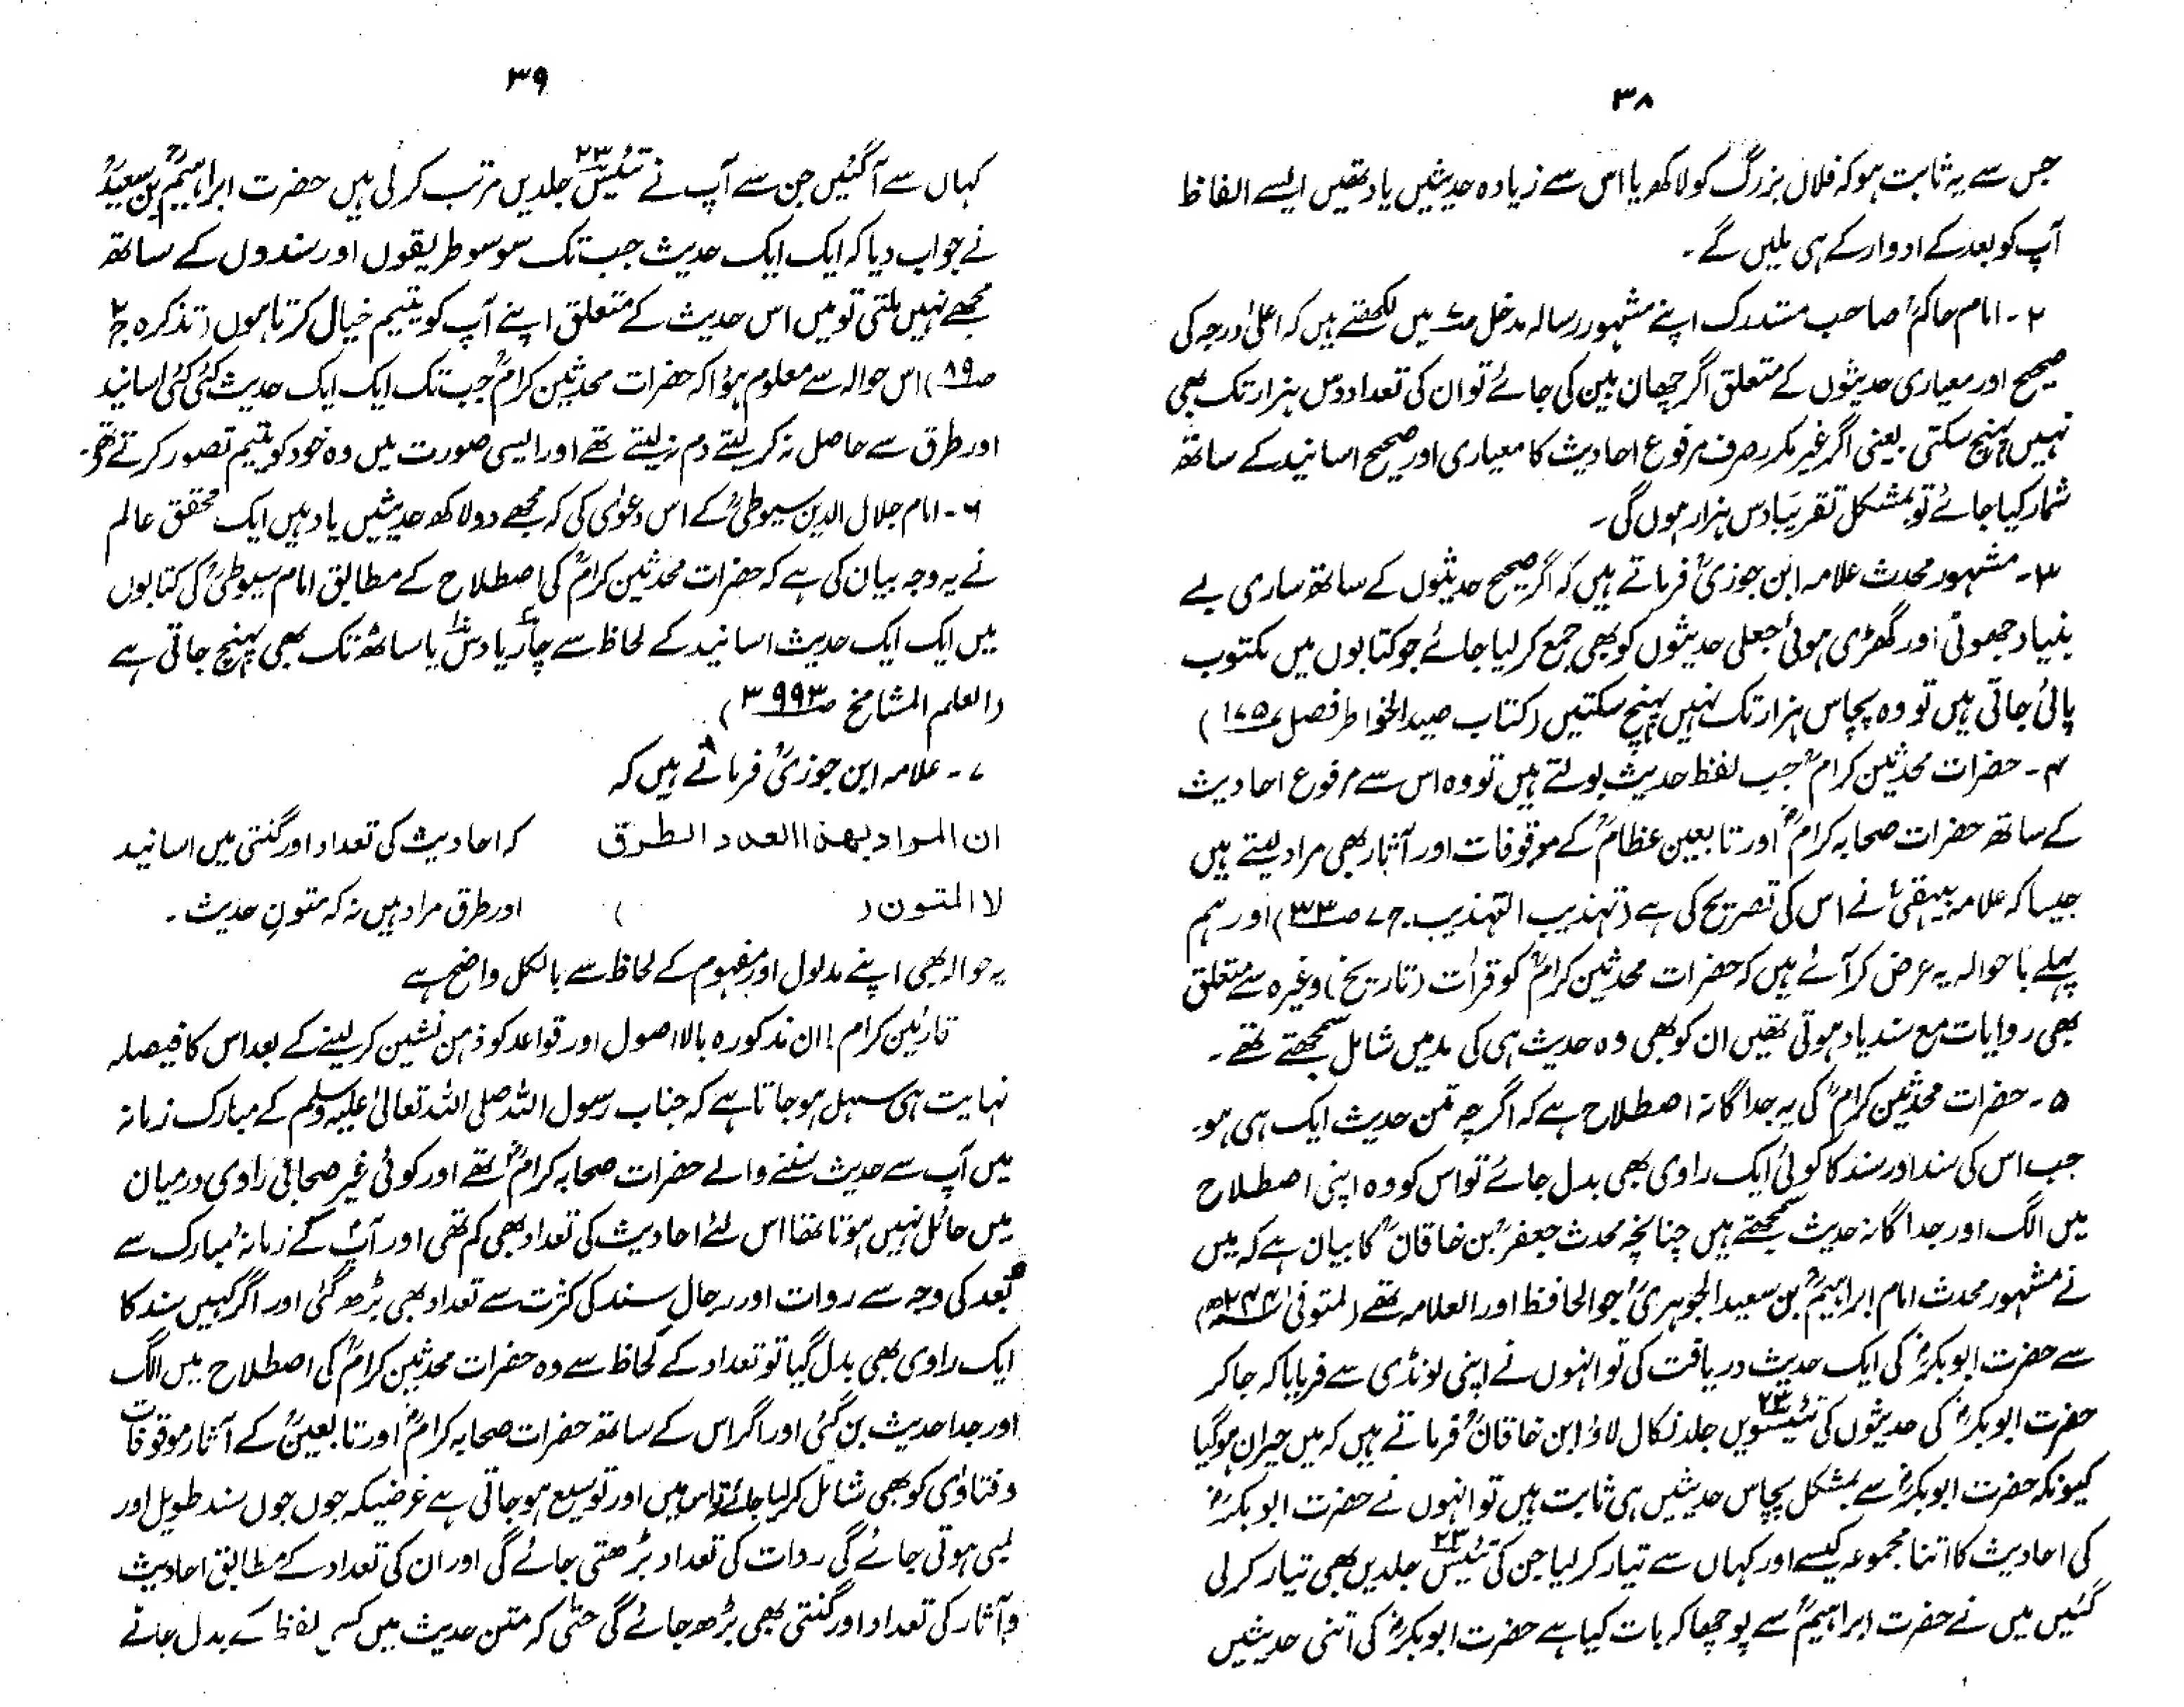 ۳۸
جس سے یہ ثابت ہو کہ فلاں بزرگ کو لاکھ یا اس سے زیادہ حدیثیں یاد تھیں ایسے الفاظ
آپ کو بعد کے ادوار کے ہی ملیں گے۔
۲۔ امام حاکمؒ صاحب مستدرک اپنے مشہور رسالہ مدخل میں لکھتے ہیں کہ اعلیٰ درجہ کی
صحیح اور معیاری حدیثوں کے متعلق اگر چھان بین کی جائے تو ان کی تعداد دس ہزار تک بھی
نہیں پہنچ سکتی یعنی اگر غیر مکرر صرف مرفوع احادیث کا معیاری اور صحیح اسانید کے ساتھ
شمار کیا جائے تو بمشکل تقریباً دس ہزار ہوں گی۔
۳۔ مشہور محدث علامہ ابن جوزیؒ فرماتے ہیں کہ اگر صحیح حدیثوں کے ساتھ ساری بے
بنیاد جھوٹی اور گھڑی ہوئی جعلی حدیثوں کو بھی جمع کر لیا جائے جو کتابوں میں مکتوب
پائی جاتی ہیں تو وہ پچاس ہزار تک نہیں پہنچ سکتیں (کتاب صید الخاطر فصل ۱۷۵)
۴۔ حضرات محدثین کرامؒ جب لفظ حدیث بولتے ہیں تو وہ اس سے مرفوع احادیث
کے ساتھ حضرات صحابہ کرامؓ اور تابعین عظامؒ کے موقوفات اور آثار بھی مراد لیتے ہیں
جیسا کہ علامہ بیہقیؒ نے اس کی تصریح کی ہے (تہذیب التہذیب ج۷ ص۳۳) اور ہم
پہلے باحوالہ یہ عرض کر آئے ہیں کہ حضرات محدثین کرامؒ کو قرأت (تاریخ) وغیرہ سے متعلق
بھی روایات مع سند یاد ہوتی تھیں ان کو بھی وہ حدیث ہی کی مد میں شامل سمجھتے تھے۔
۵۔ حضرات محدثین کرامؒ کی یہ جداگانہ اصطلاح ہے کہ اگرچہ متن حدیث ایک ہی ہو۔
جب اس کی سند اور سند کا کوئی ایک راوی بھی بدل جائے تو اس کو وہ اپنی اصطلاح
میں الگ اور جداگانہ حدیث سمجھتے ہیں چنانچہ محدث جعفرؒ بن خاقانؒ کا بیان ہے کہ میں
نے مشہور محدث امام ابراہیمؒ بن سعید الجوہریؒ جو الحافظ اور العلامہ تھے (المتوفیٰ ۲۴۴ھ)
سے حضرت ابوبکرؓ کی ایک حدیث دریافت کی تو انہوں نے اپنی لونڈی سے فرمایا کہ جا کر
حضرت ابوبکرؓ کی حدیثوں کی تئیسویں ۲۳ جلد نکال لاؤ ابن خاقانؒ فرماتے ہیں کہ میں حیران ہو گیا
کیونکہ حضرت ابوبکرؓ سے بمشکل پچاس حدیثیں ہی ثابت ہیں تو انہوں نے حضرت ابوبکرؓ
کی احادیث کا اتنا مجموعہ کیسے اور کہاں سے تیار کر لیا جن کی تئیس ۲۳ جلدیں بھی تیار کر لی
گئیں میں نے حضرت ابراہیمؒ سے پوچھا کہ بات کیا ہے حضرت ابوبکرؓ کی اتنی حدیثیں
۳۹
کہاں سے آ گئیں جن سے آپ نے تئیس ۲۳ جلدیں مرتب کر لی ہیں حضرت ابراہیمؒ بن سعیدؒ
نے جواب دیا کہ ایک ایک حدیث جب تک سو سو طریقوں اور سندوں کے ساتھ
مجھے نہیں ملتی تو میں اس حدیث کے متعلق اپنے آپ کو یتیم خیال کرتا ہوں (تذکرہ ج۲
ص۸۹) اس حوالہ سے معلوم ہوا کہ حضرات محدثین کرامؒ جب تک ایک ایک حدیث کئی کئی اسانید
اور طرق سے حاصل نہ کر لیتے دم نہ لیتے تھے اور ایسی صورت میں وہ خود کو یتیم تصور کرتے تھے۔
۶۔ امام جلال الدین سیوطیؒ کے اس دعویٰ کی کہ مجھے دو لاکھ حدیثیں یاد ہیں ایک محقق عالم
نے یہ وجہ بیان کی ہے کہ حضرات محدثین کرامؒ کی اصطلاح کے مطابق امام سیوطیؒ کی کتابوں
میں ایک ایک حدیث اسانید کے لحاظ سے چار ۴ یا دس ۱۰ یا ساٹھ تک بھی پہنچ جاتی ہے
(العلم المشامخ ص۳۹۹۳)
۷۔ علامہ ابن جوزیؒ فرماتے ہیں کہ
ان المراد بهذا العدد الطرق کہ احادیث کی تعداد اور گنتی میں اسانید
لا المتون ( ) اور طرق مراد ہیں نہ کہ متونِ حدیث۔
یہ حوالہ بھی اپنے مدلول اور مفہوم کے لحاظ سے بالکل واضح ہے
قارئین کرام! ان مذکورہ بالا اصول اور قواعد کو ذہن نشین کر لینے کے بعد اس کا فیصلہ
نہایت ہی سہل ہو جاتا ہے کہ جناب رسول اللہ صلی اللہ تعالیٰ علیہ وسلم کے مبارک زمانہ
میں آپ سے حدیث سننے والے حضرات صحابہ کرامؓ تھے اور کوئی غیر صحابی راوی درمیان
میں حائل نہیں ہوتا تھا اس لئے احادیث کی تعداد بھی کم تھی اور آپؐ کے زمانۂ مبارک سے
بُعد کی وجہ سے روات اور رجالِ سند کی کثرت سے تعداد بھی بڑھ گئی اور اگر کہیں سند کا
ایک راوی بھی بدل گیا تو تعداد کے لحاظ سے وہ حضرات محدثین کرامؒ کی اصطلاح میں الگ
اور جدا حدیث بن گئی اور اگر اس کے ساتھ حضرات صحابہ کرامؓ اور تابعینؒ کے آثار موقوفات
و فتاویٰ کو بھی شامل کر لیا جائے تو اس میں اور توسیع ہو جاتی ہے غرضیکہ جوں جوں سند طویل اور
لمبی ہوتی جائے گی روات کی تعداد بڑھتی جائے گی اور ان کی تعداد کے مطابق احادیث
و آثار کی تعداد اور گنتی بھی بڑھ جائے گی حتٰی کہ متن حدیث میں کسی لفظ کے بدل جانے